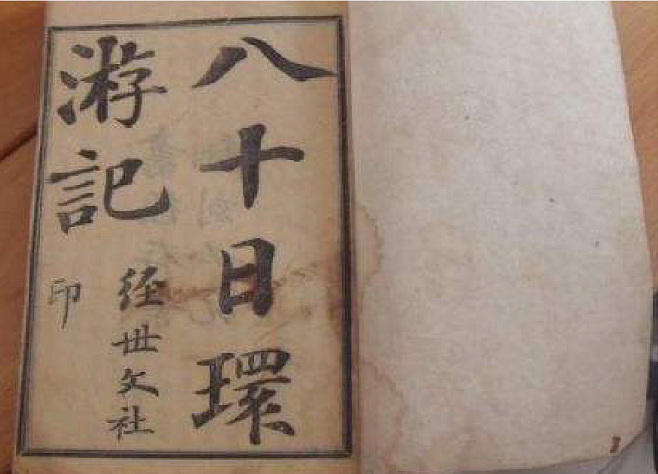 八十日環
游記
经世文社
印